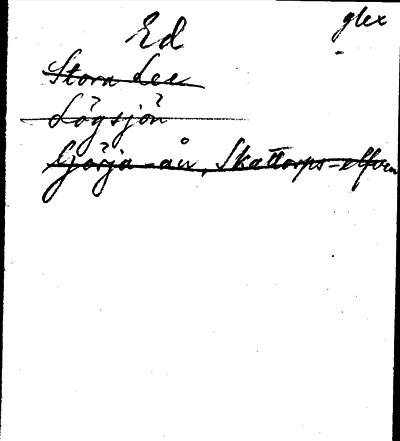 glex
Ed
Stora Lee
Lögsjön
Görja-ån, Skattorps-elfven